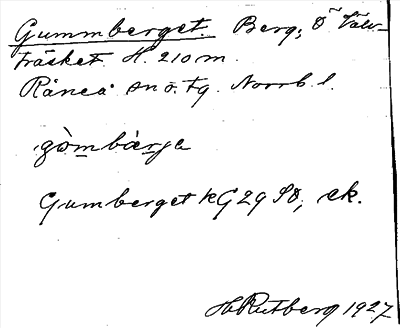 Gummberget. Berg, Ö Välv-
träsket. H. 210 m.
Råneå sn o. tg. Norrb. l.
gòmbàrja
Gumberget KG 29 SO, ek.
H Rutberg 1927